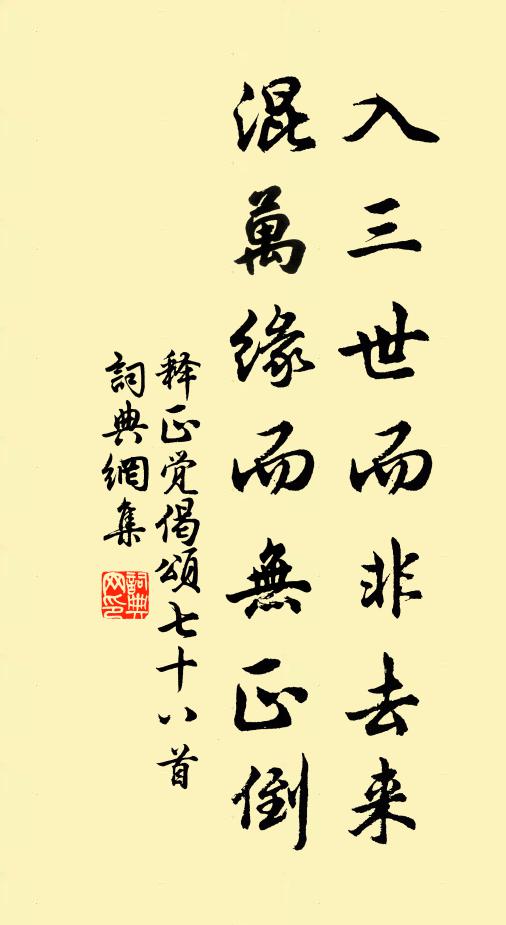 入三世而非去来
混萬緣而無正倒
释正觉偈頌七十八首
詞典網集
詞典網印